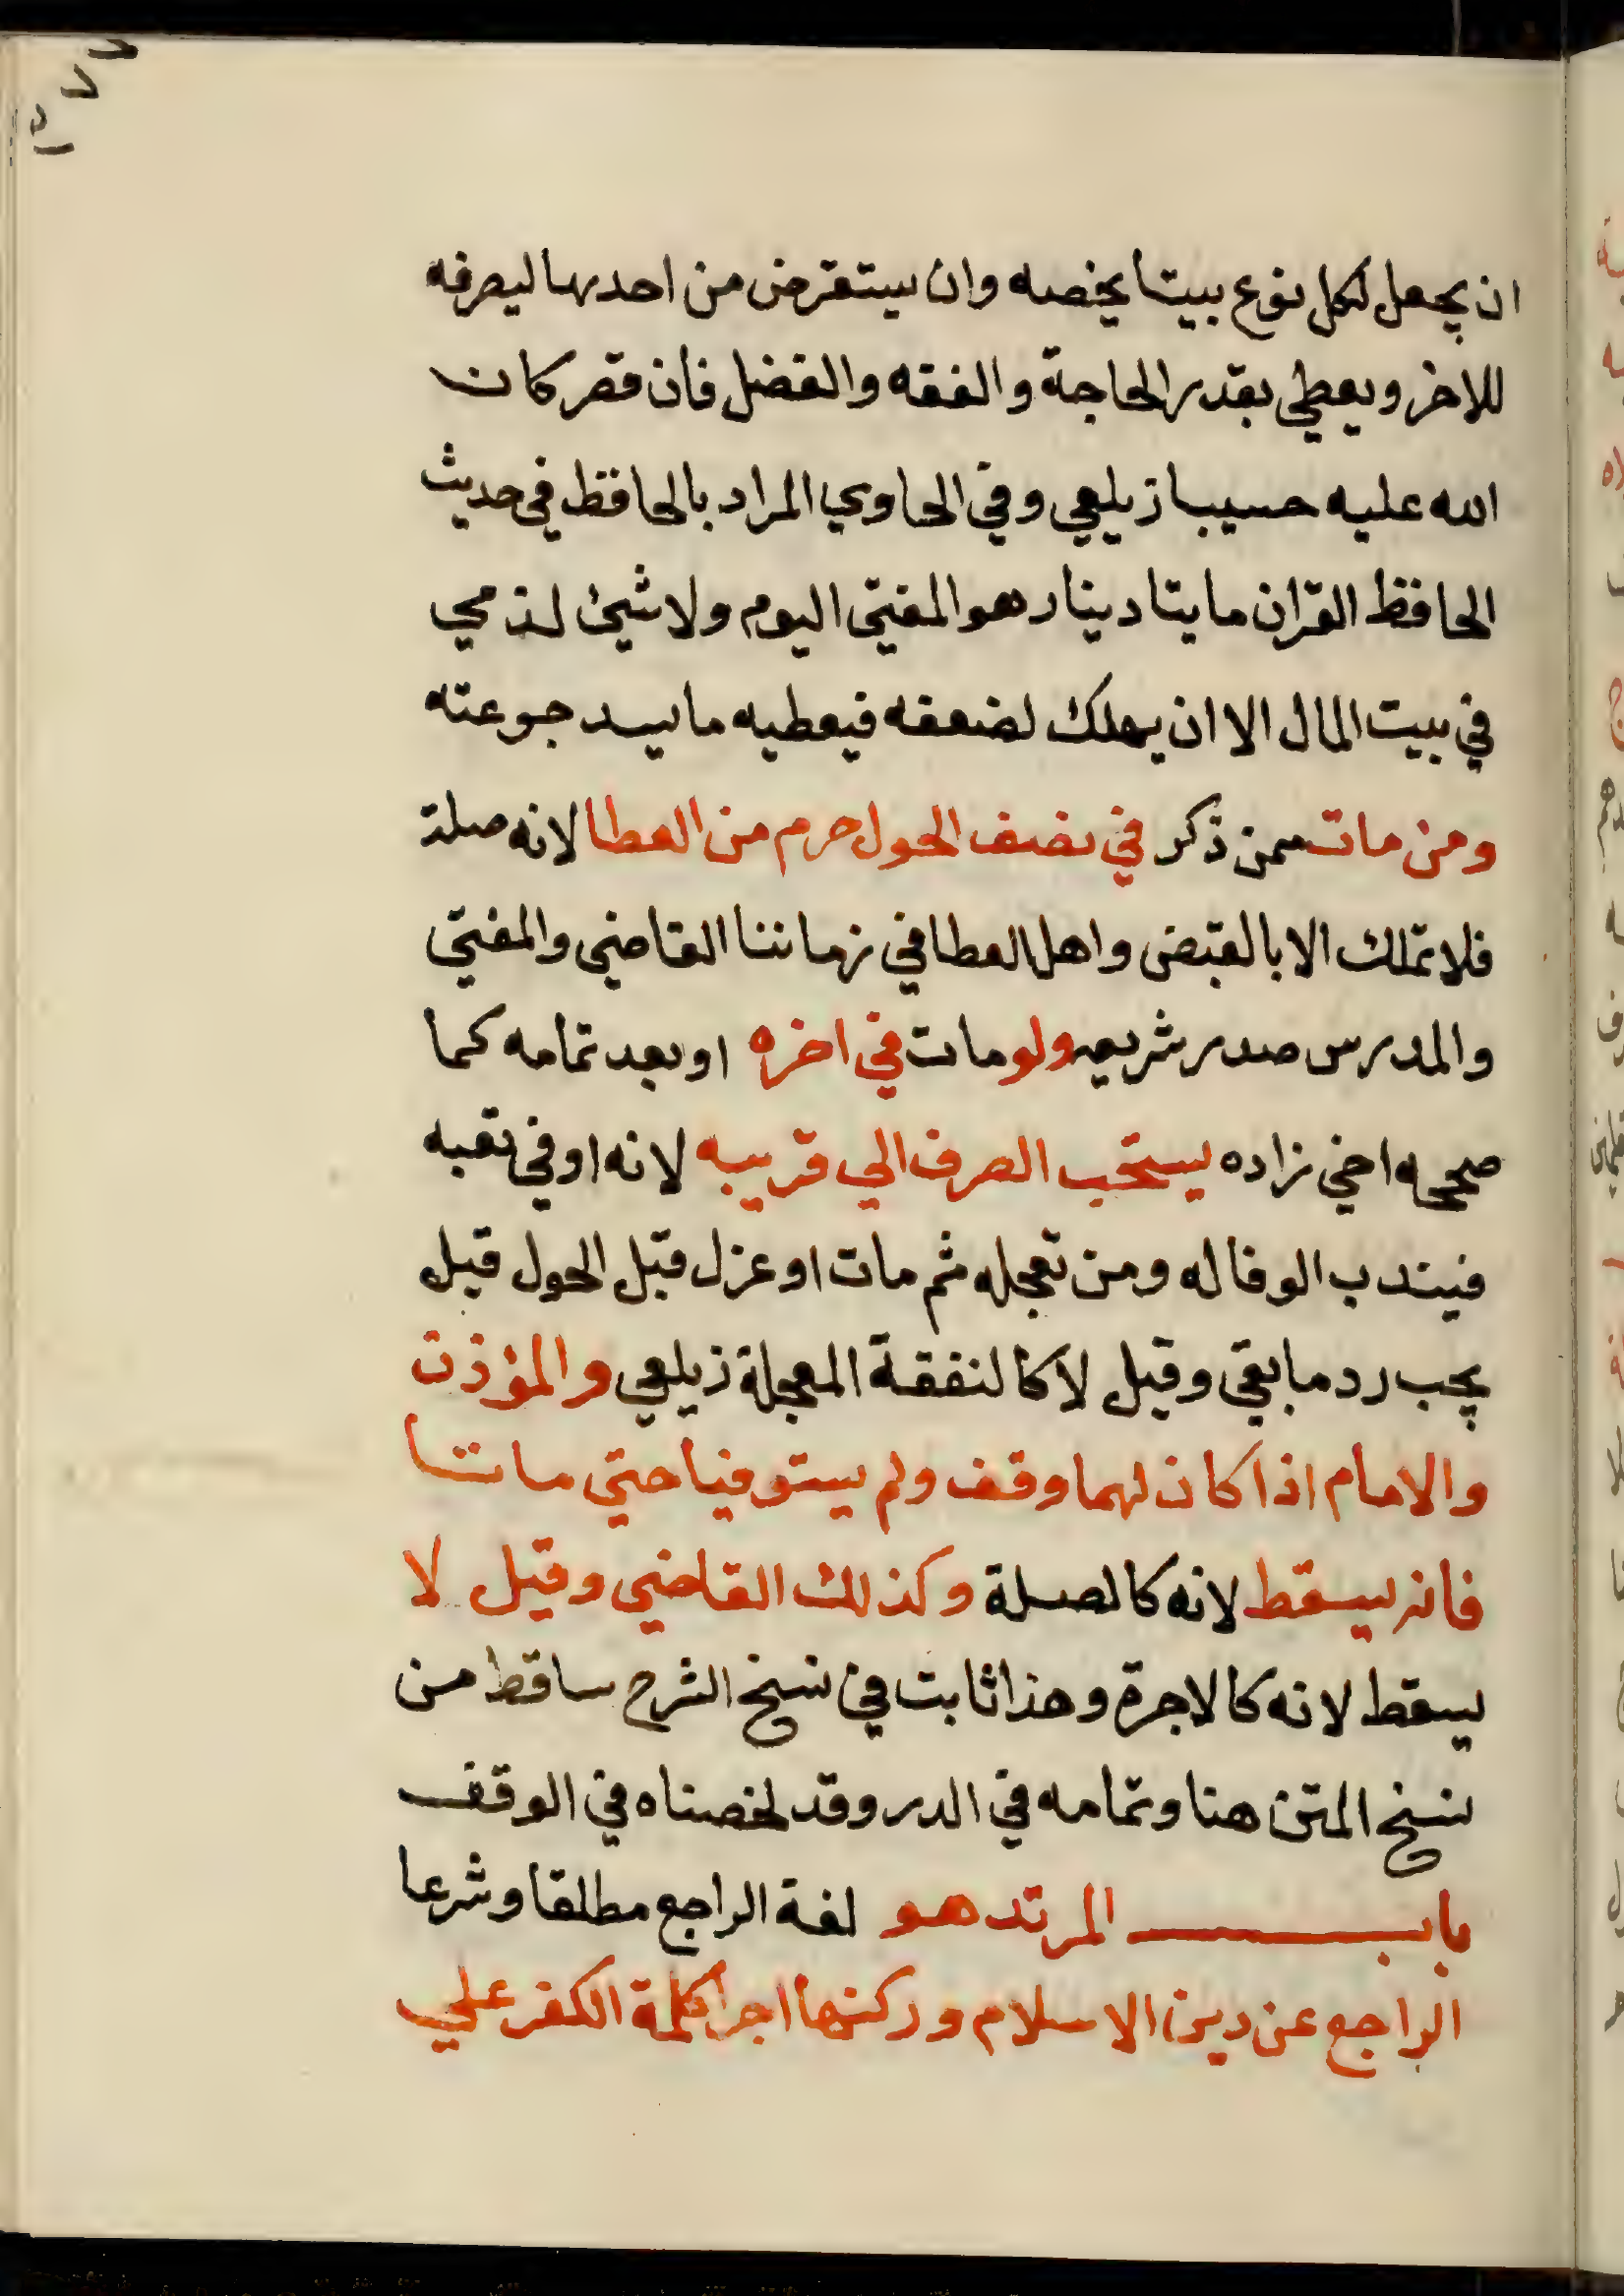 ان يجعل لكل نوع بيتا يخصه وان يستقرض من احدها ليصرفه
للاخر ويعطي بقدر الحاجة والفقه والفضل فان قصر كان
الله عليه حسيبا زيلعي وفي الحاوي المراد بالحافظ في حديث
الحافظ القران مايتا دينار هو المفتي اليوم ولا شيئ لذمي
في بيت المال الا ان يهلك لضعفه فيعطيه ما يسد جوعته
ومن مات ممن ذكر في نصف الحول حرم من العطا لانه صلة
فلا تملك الا بالقبض واهل العطا في زماننا القاضي والمفتي
والمدرس صدر شريعه ولو مات في اخره او بعد تمامه كما
صححه اخي زاده يستحب الصرف الي قريبه لانه اوفي تعبه
فيندب الوفا له ومن تعجله ثم مات او عزل قبل الحول قيل
يجب رد ما بقي وقيل لا كالنفقة المعجلة زيلعي والمؤذن
والامام اذا كان لهما وقف ولم يستوفيا حتي ماتا
فانه يسقط لانه كالصلة وكذلك القاضي وقيل لا
يسقط لانه كالاجرة وهذا ثابت في نسخ الشرح ساقط من
نسخ المتن هنا وتمامه في الدر وقد لخصناه في الوقف
باب المرتد هو لغة الراجع مطلقا وشرعا
الراجع عن دين الاسلام وركنها اجرا كلمة الكفر علي